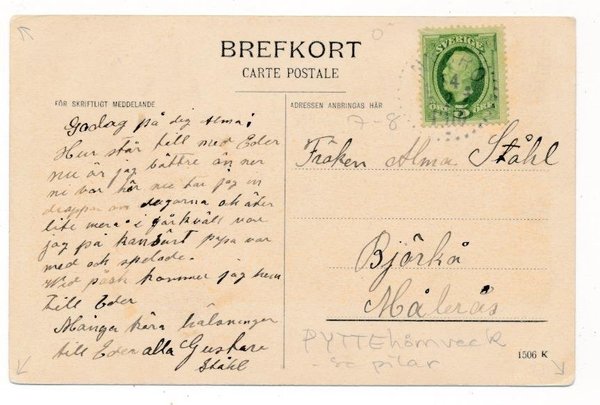 BREFKORT
CARTE POSTALE
FÖR SKRIFTLIGT MEDDELANDE
ADRESSEN ANBRINGAS HÄR
SVERIGE
5
7-8
Godag på dig Alma!
Hur står till med Eder
nu är jag bättre än när
ni var här nu tar jag in
droppar om dagarna och äter
lite mera i går kväll var
jag på kansärt pypa var
med och spelade.
Wid påsk kommer jag hem
till Eder
Många kära hälsningar
till Eder alla Gustava
Ståhl
Fröken Alma Ståhl
Björkå
Målerås
PYTTEhörnveck
se pilar
1506 K